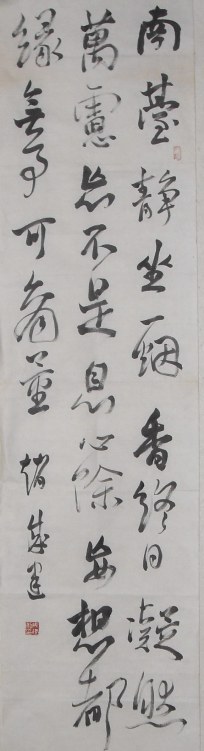 南臺靜坐一炉香終日凝然
萬慮忘不是息心除妄想都
緣無事可商量 趙